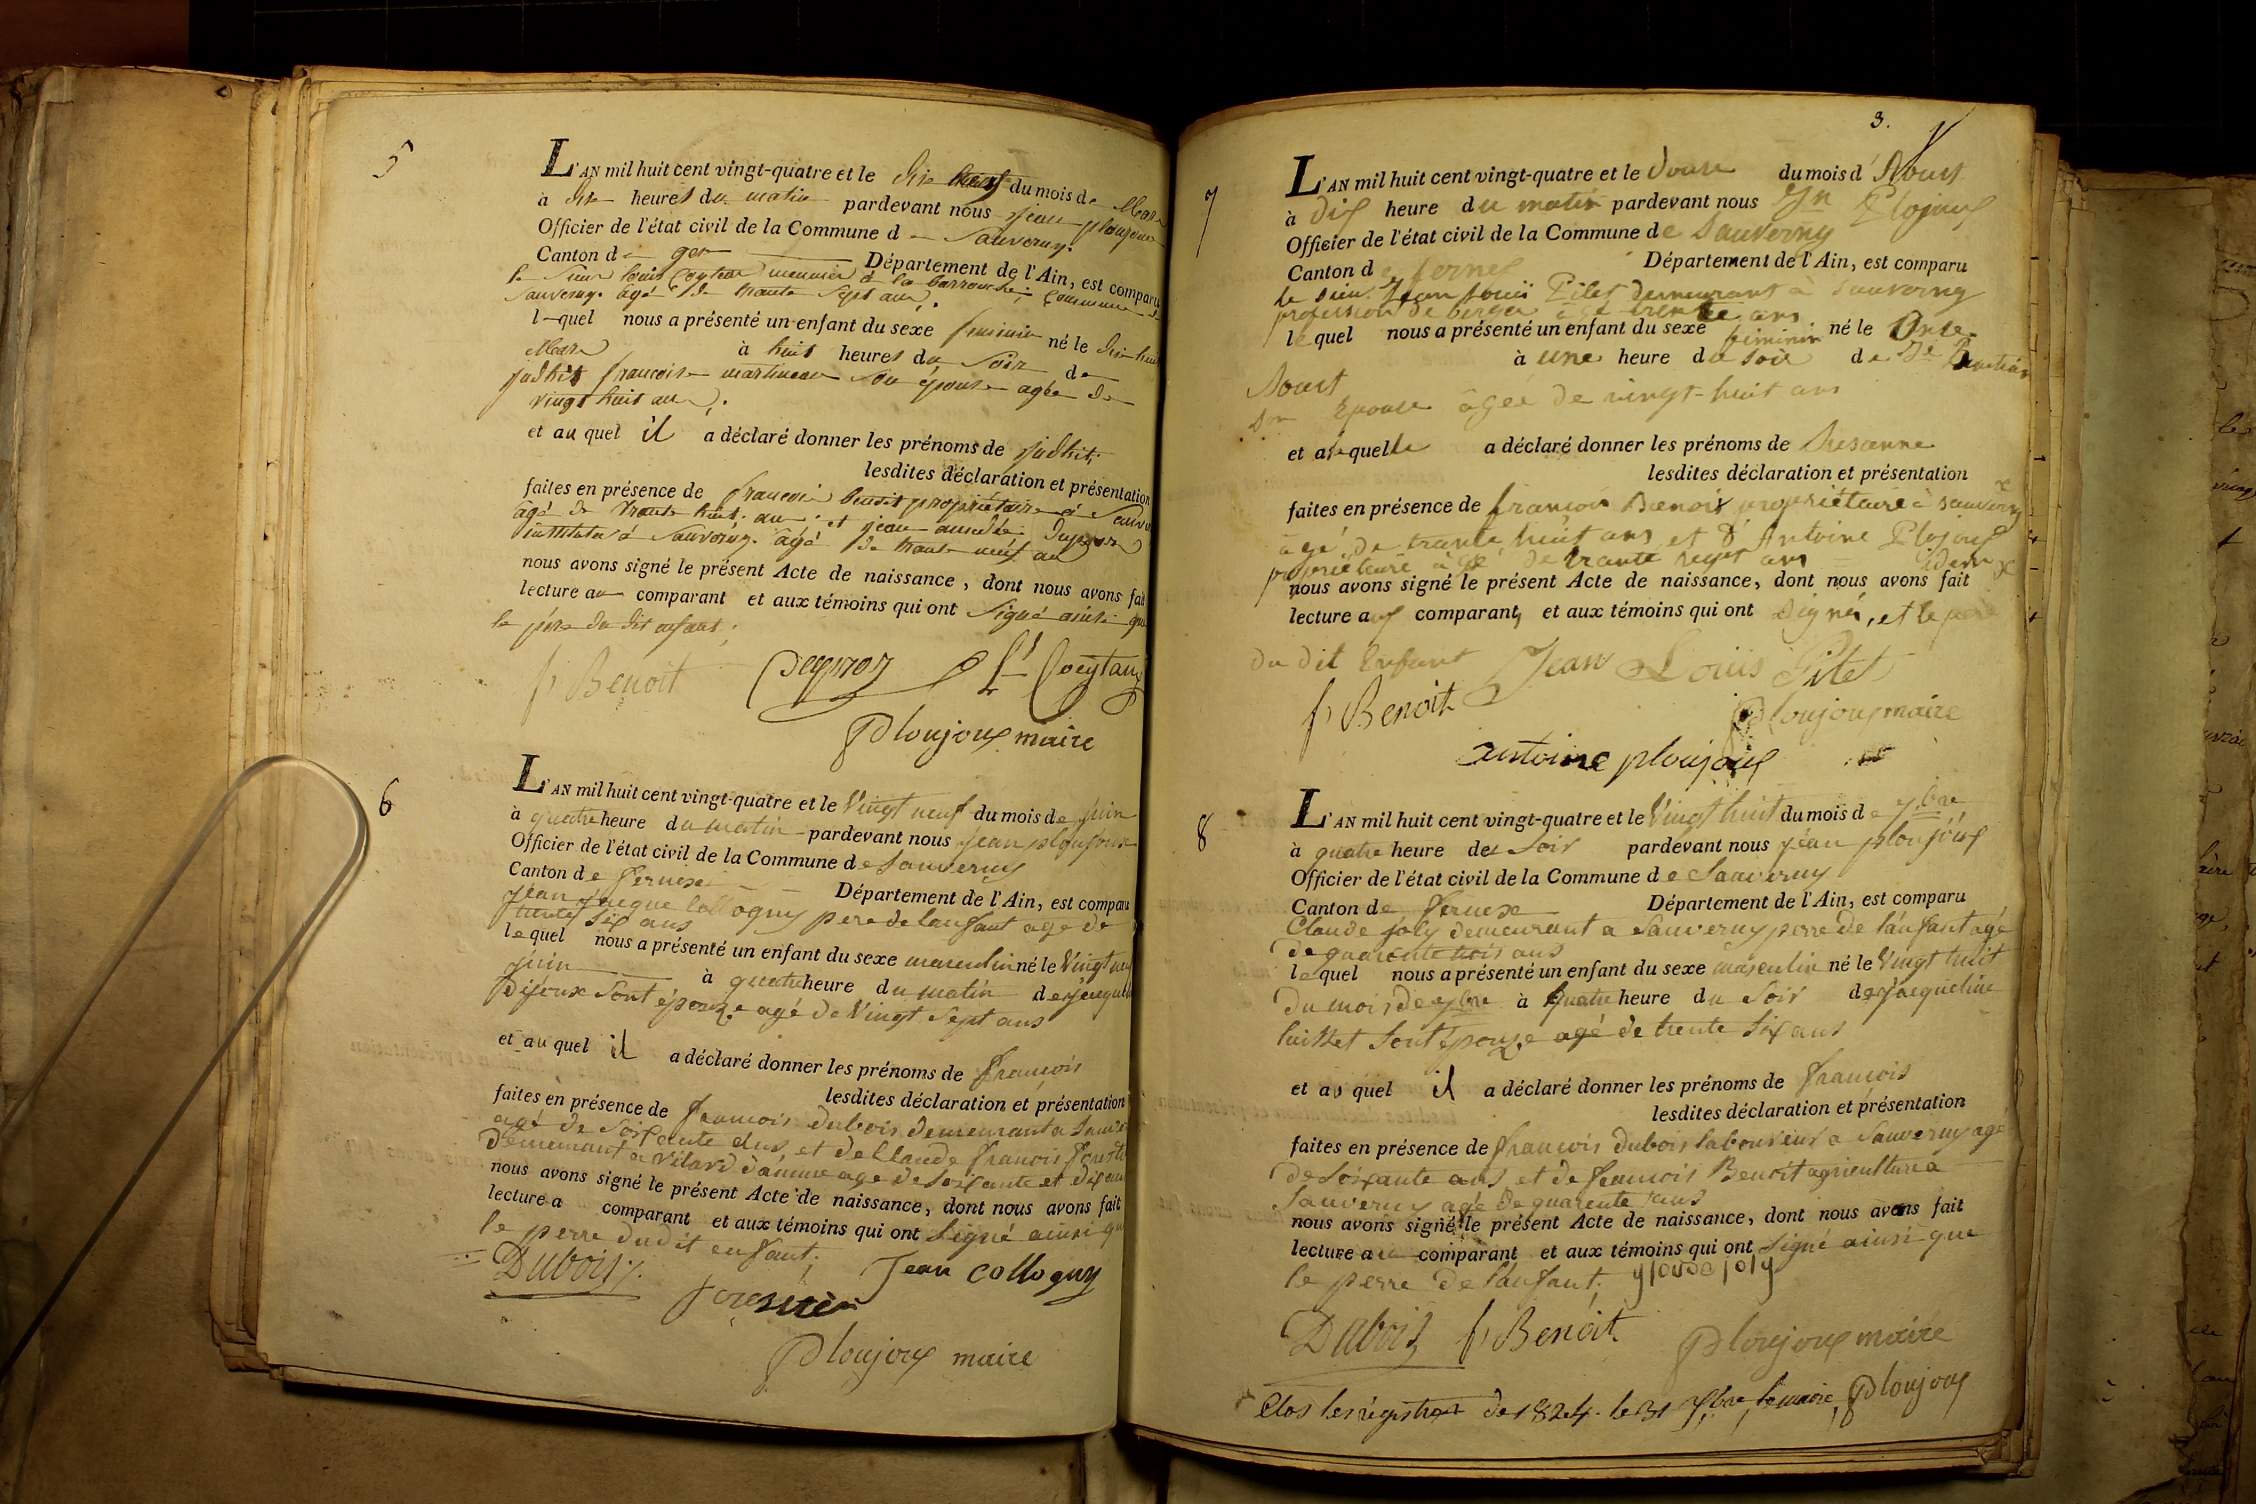 5
L'AN mil huit cent vingt-quatre et le dix neuf du mois de Mars
à dix heures du matin pardevant nous jean ploujoux
Officier de l'état civil de la Commune d Sauverny.
Canton d gex Département de l'Ain, est comparu
le Sieur louis meunier à la barrouche, commune de
Sauverny. agé de trante sept ans.
l quel nous a présenté un enfant du sexe feminin né le dix huit
Mars à huit heures du Soir de
judhit francoise martineau son épouse agée de
vingt huit ans.
et au quel il a déclaré donner les prénoms de judhit.
lesdites déclaration et présentation
faites en présence de francois benoit propriétaire à Sauver
agé de trante huit ans. et jean amédée
instituteur à Sauverny. agé de trante neuf ans
nous avons signé le présent Acte de naissance, dont nous avons fait
lecture au comparant et aux témoins qui ont Signé ainsi que
le père du dit enfant;
f Benoit
Ploujoux maire
6
L'AN mil huit cent vingt-quatre et le Vingt neuf du mois de juin
à quatre heure du matin pardevant nous jean ploujoux
Officier de l'état civil de la Commune de Sauverny
Canton de fernex Département de l'Ain, est comparu
jean jacque collogny pere de lanfant age de
trente six ans
le quel nous a présenté un enfant du sexe masculin né le Vingt neuf
juin à quatre heure du matin de
dijoux Sont épouze agé de Vingt Sept ans
et au quel il a déclaré donner les prénoms de francois
lesdites déclaration et présentation
faites en présence de francois dubois demeurant a Sauve
agé de Soixante ans, et de Claude francois
demeurant a vilard age de Soixante et dix ans
nous avons signé le présent Acte de naissance, dont nous avons fait
lecture a comparant et aux témoins qui ont Signé ainsi que
le perre du dit enfant;
Dubois
Jean collogny
Ploujoux maire
3.
7
L'AN mil huit cent vingt-quatre et le douze du mois d'Aoust
à dix heure du matin pardevant nous Jn Plojoux
Officier de l'état civil de la Commune de Sauverny
Canton de fernex Département de l'Ain, est comparu
le sieur Jean louis Pitet demeurant à Sauverny
profession de berger agé trente ans
le quel nous a présenté un enfant du sexe féminin né le Onze
Aoust à une heure du soir de
Sn Epouse âgée de vingt-huit ans
et a quelle a déclaré donner les prénoms de Susanne
lesdites déclaration et présentation
faites en présence de francois Benoix propriétaire à Sauverny
âgé de trante huit ans et d'Antoine Plojoux
propriétaire âgé de trante sept ans idem
nous avons signé le présent Acte de naissance, dont nous avons fait
lecture aux comparants et aux témoins qui ont signés, et le père
du dit Enfant Jean Louis Pitet
f Benoit Ploujoux maire
antoine ploujoux
8
L'AN mil huit cent vingt-quatre et le Vingt huit du mois de
à quatre heure du Soir pardevant nous jean ploujoux
Officier de l'état civil de la Commune de Sauverny
Canton de fernex Département de l'Ain, est comparu
Claude joly demeurant a Sauverny perre de lanfant agé
de quarente trois ans
le quel nous a présenté un enfant du sexe masculin né le Vingt huit
du mois de à quatre heure du Soir de jacqueline
Sont épouze agé de trente Six ans
et au quel il a déclaré donner les prénoms de francois
lesdites déclaration et présentation
faites en présence de francois dubois laboureur a Sauverny agé
de Soixante ans et de francois Benoit agriculture a
Sauverny agé de quarente ans
nous avons signé le présent Acte de naissance, dont nous avons fait
lecture au comparant et aux témoins qui ont Signé ainsi que
le perre de lanfant; joly
Dubois f Benoit Ploujoux maire
Clos les régistres de 1824. le 31 Xbre, le maire, Ploujoux